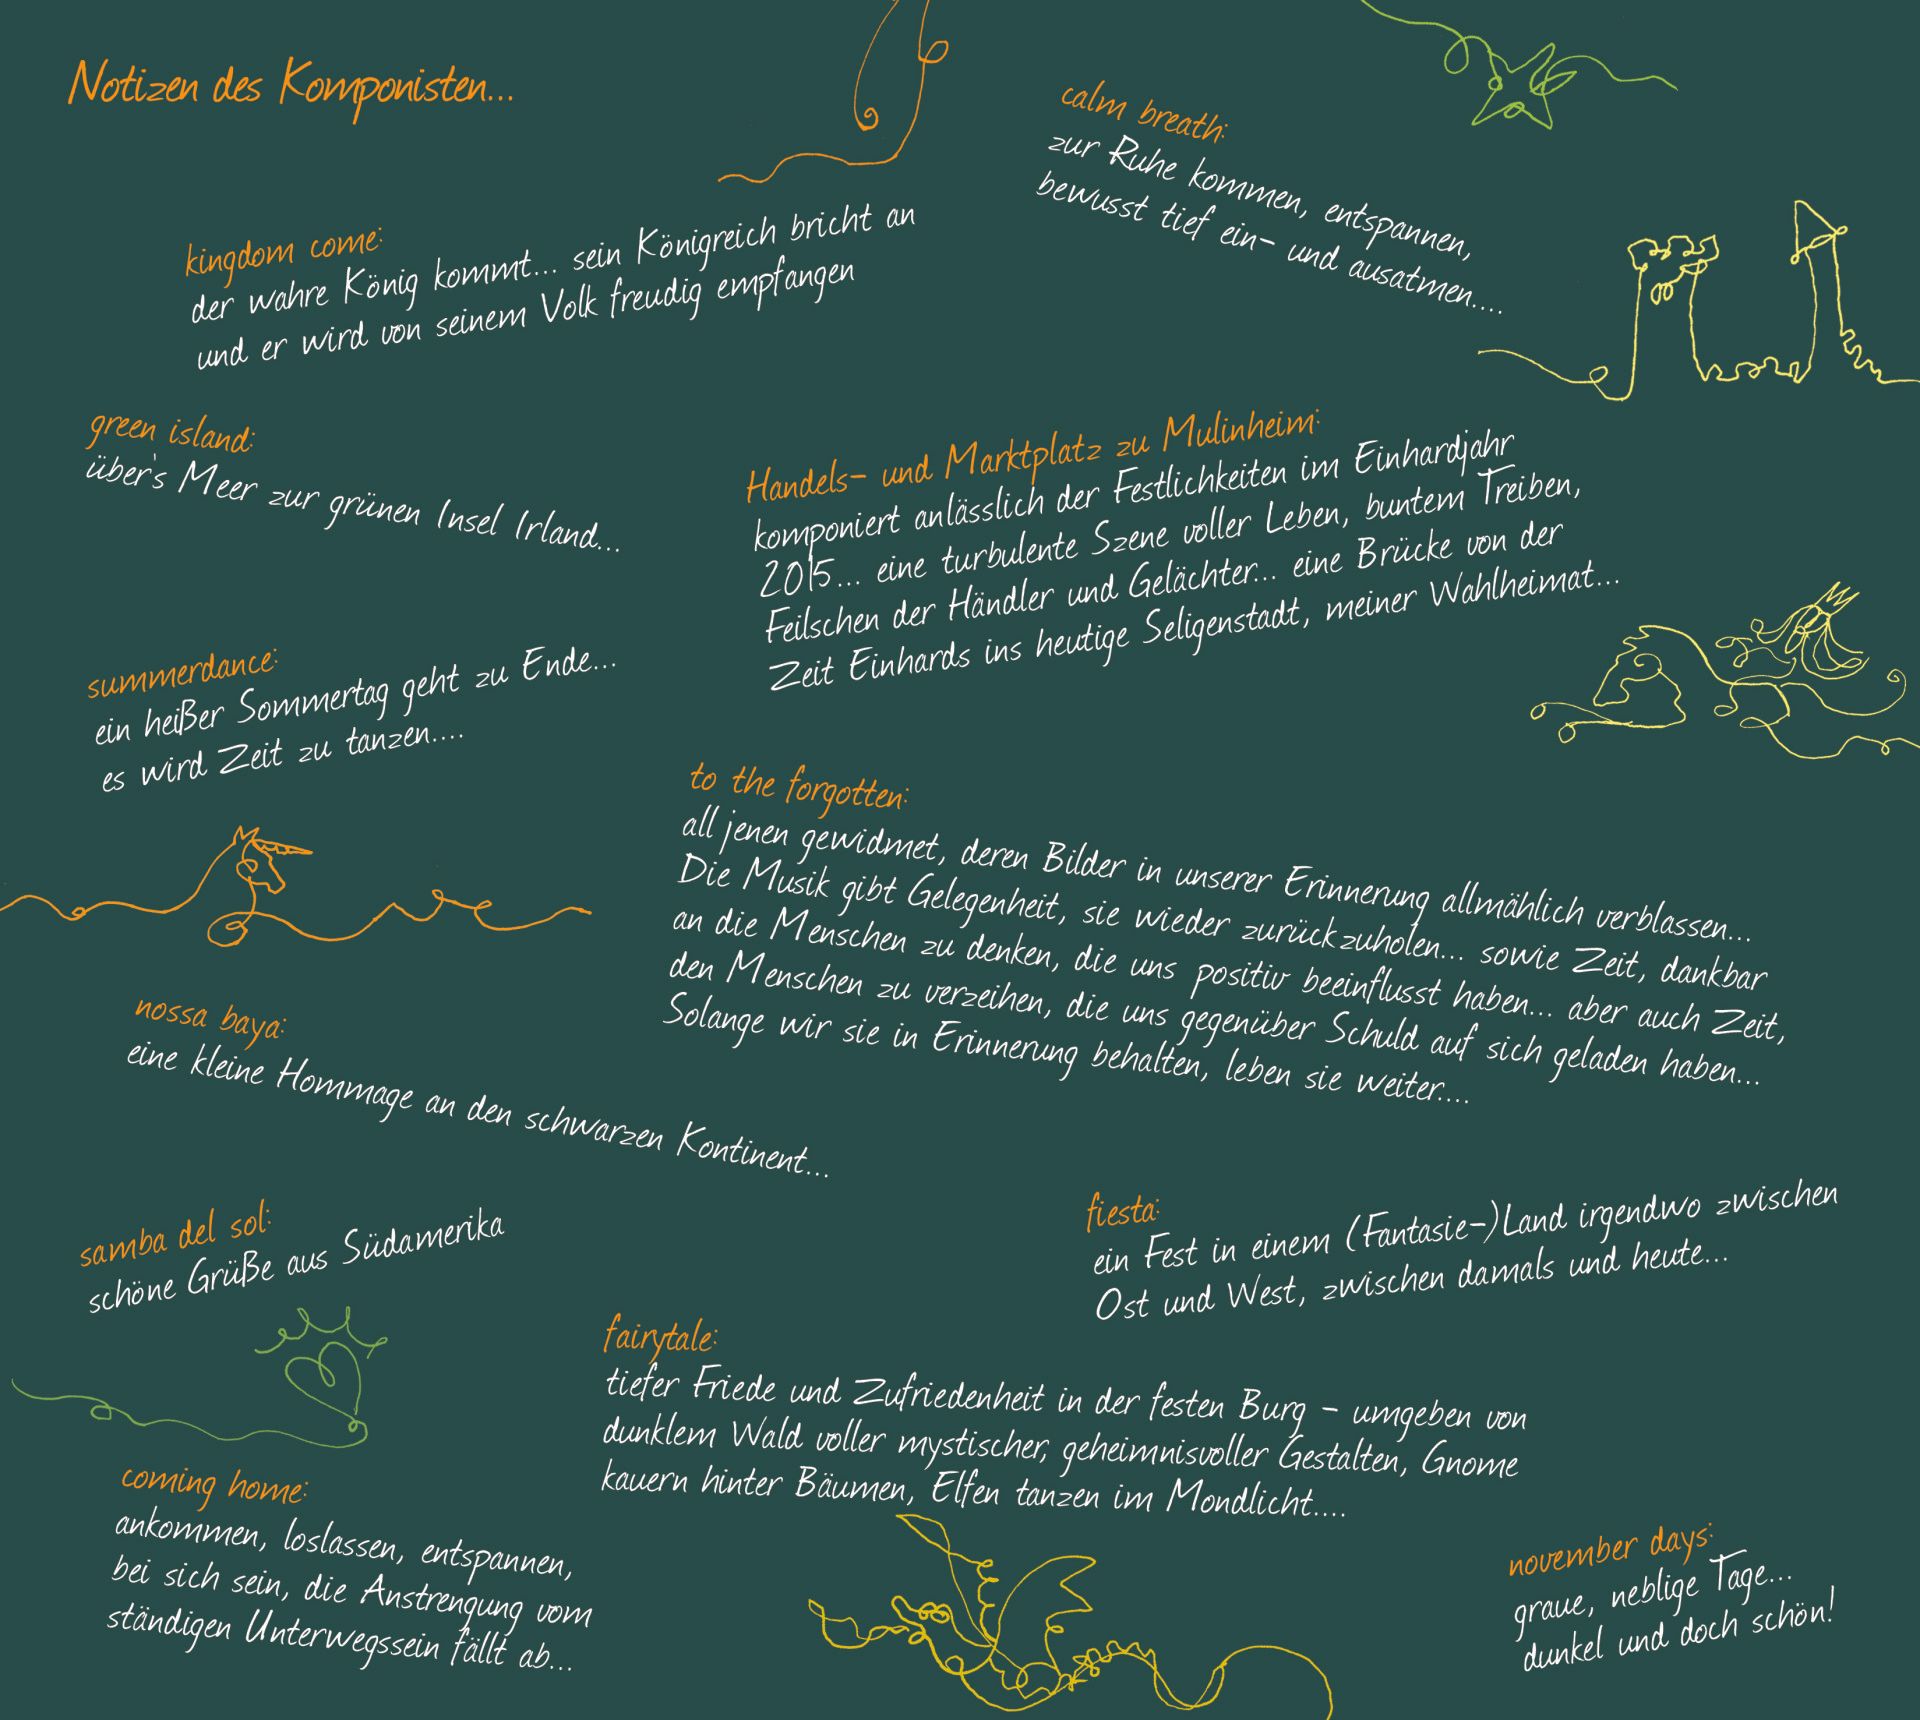 Notizen des Komponisten...
kingdom come:
der wahre König kommt... sein Königreich bricht an
und er wird von seinem Volk freudig empfangen
calm breath:
zur Ruhe kommen, entspannen,
bewusst tief ein- und ausatmen....
green island:
über's Meer zur grünen Insel Irland...
Handels- und Marktplatz zu Mulinheim:
komponiert anlässlich der Festlichkeiten im Einhardjahr
2015... eine turbulente Szene voller Leben, buntem Treiben,
Feilschen der Händler und Gelächter... eine Brücke von der
Zeit Einhards ins heutige Seligenstadt, meiner Wahlheimat...
summerdance:
ein heißer Sommertag geht zu Ende...
es wird Zeit zu tanzen....
to the forgotten:
all jenen gewidmet, deren Bilder in unserer Erinnerung allmählich verblassen...
Die Musik gibt Gelegenheit, sie wieder zurückzuholen... sowie Zeit, dankbar
an die Menschen zu denken, die uns positiv beeinflusst haben... aber auch Zeit,
den Menschen zu verzeihen, die uns gegenüber Schuld auf sich geladen haben...
Solange wir sie in Erinnerung behalten, leben sie weiter....
nossa baya:
eine kleine Hommage an den schwarzen Kontinent...
samba del sol:
schöne Grüße aus Südamerika
fiesta:
ein Fest in einem (Fantasie-)Land irgendwo zwischen
Ost und West, zwischen damals und heute...
fairytale:
tiefer Friede und Zufriedenheit in der festen Burg - umgeben von
dunklem Wald voller mystischer, geheimnisvoller Gestalten, Gnome
kauern hinter Bäumen, Elfen tanzen im Mondlicht....
coming home:
ankommen, loslassen, entspannen,
bei sich sein, die Anstrengung vom
ständigen Unterwegssein fällt ab...
november days:
graue, neblige Tage...
dunkel und doch schön!